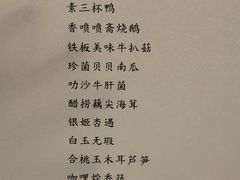 素三杯鸭
香喷喷斋烧鹅
铁板美味牛扒菇
珍菌贝贝南瓜
叻沙牛肝菌
醋捞藕尖海茸
银姬杏遇
白玉无瑕
合桃玉木耳芦笋
咖喱烩香蔬